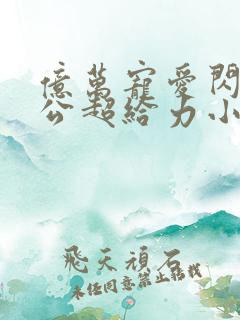 億萬寵愛閃
公超給力小
飛天頑石
未经同意禁止转载